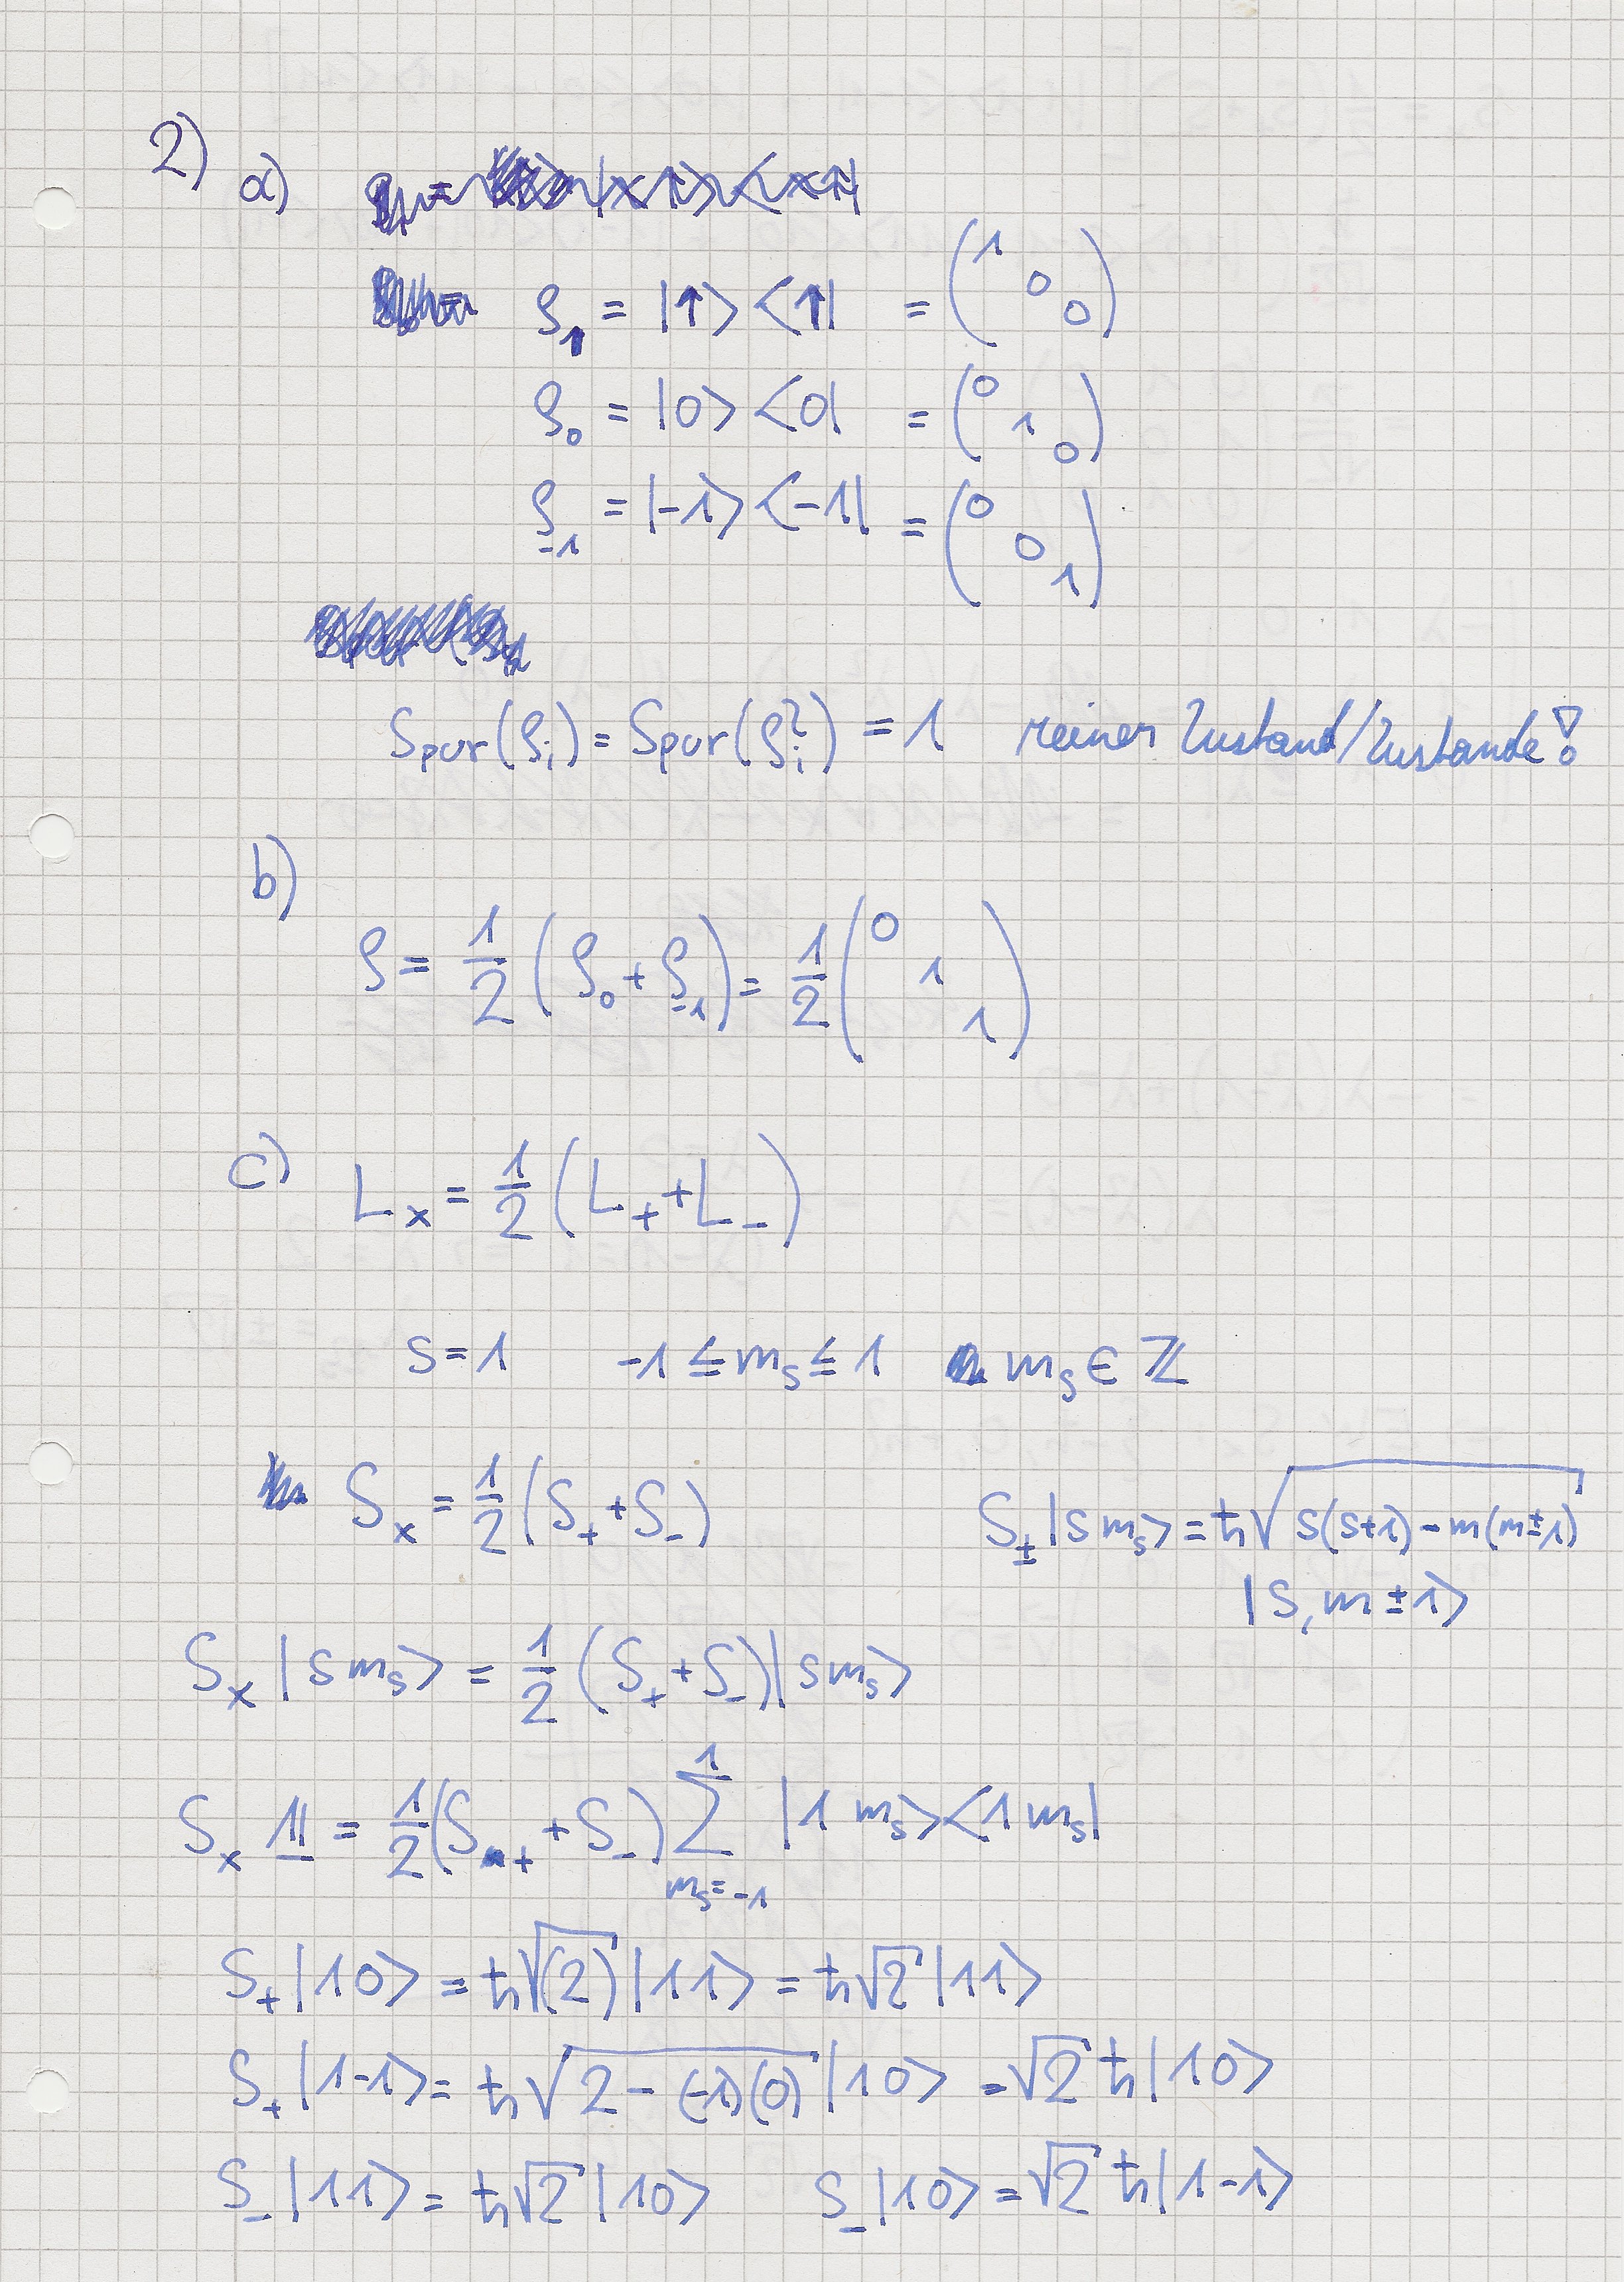 2) a)
ρ↑ = |↑> <↑| = (1 0 0)
ρ₀ = |0> <0| = (0 1 0)
ρ₋₁ = |-1> <-1| = (0 0 1)
Spur(ρᵢ) = Spur(ρᵢ²) = 1 reiner Zustand/Zustande!
b)
ρ = 1/2 (ρ₀ + ρ₋₁) = 1/2 (0 1 1)
c) Lₓ = 1/2 (L₊ + L₋)
s = 1 -1 ≤ mₛ ≤ 1 mₛ ∈ ℤ
Sₓ = 1/2 (S₊ + S₋) S± |s mₛ> = ħ √(s(s+1) - m(m±1))
|s, m ± 1>
Sₓ |s mₛ> = 1/2 (S₊ + S₋) |s mₛ>
Sₓ 𝟙 = 1/2 (S₊ + S₋) ∑_{mₛ=-1}^{1} |1 mₛ> <1 mₛ|
S₊ |1 0> = ħ √(2) |1 1> = ħ √2 |1 1>
S₊ |1 -1> = ħ √(2 - (-1)(0)) |1 0> = √2 ħ |1 0>
S₋ |1 1> = ħ √2 |1 0> S₋ |1 0> = √2 ħ |1 -1>